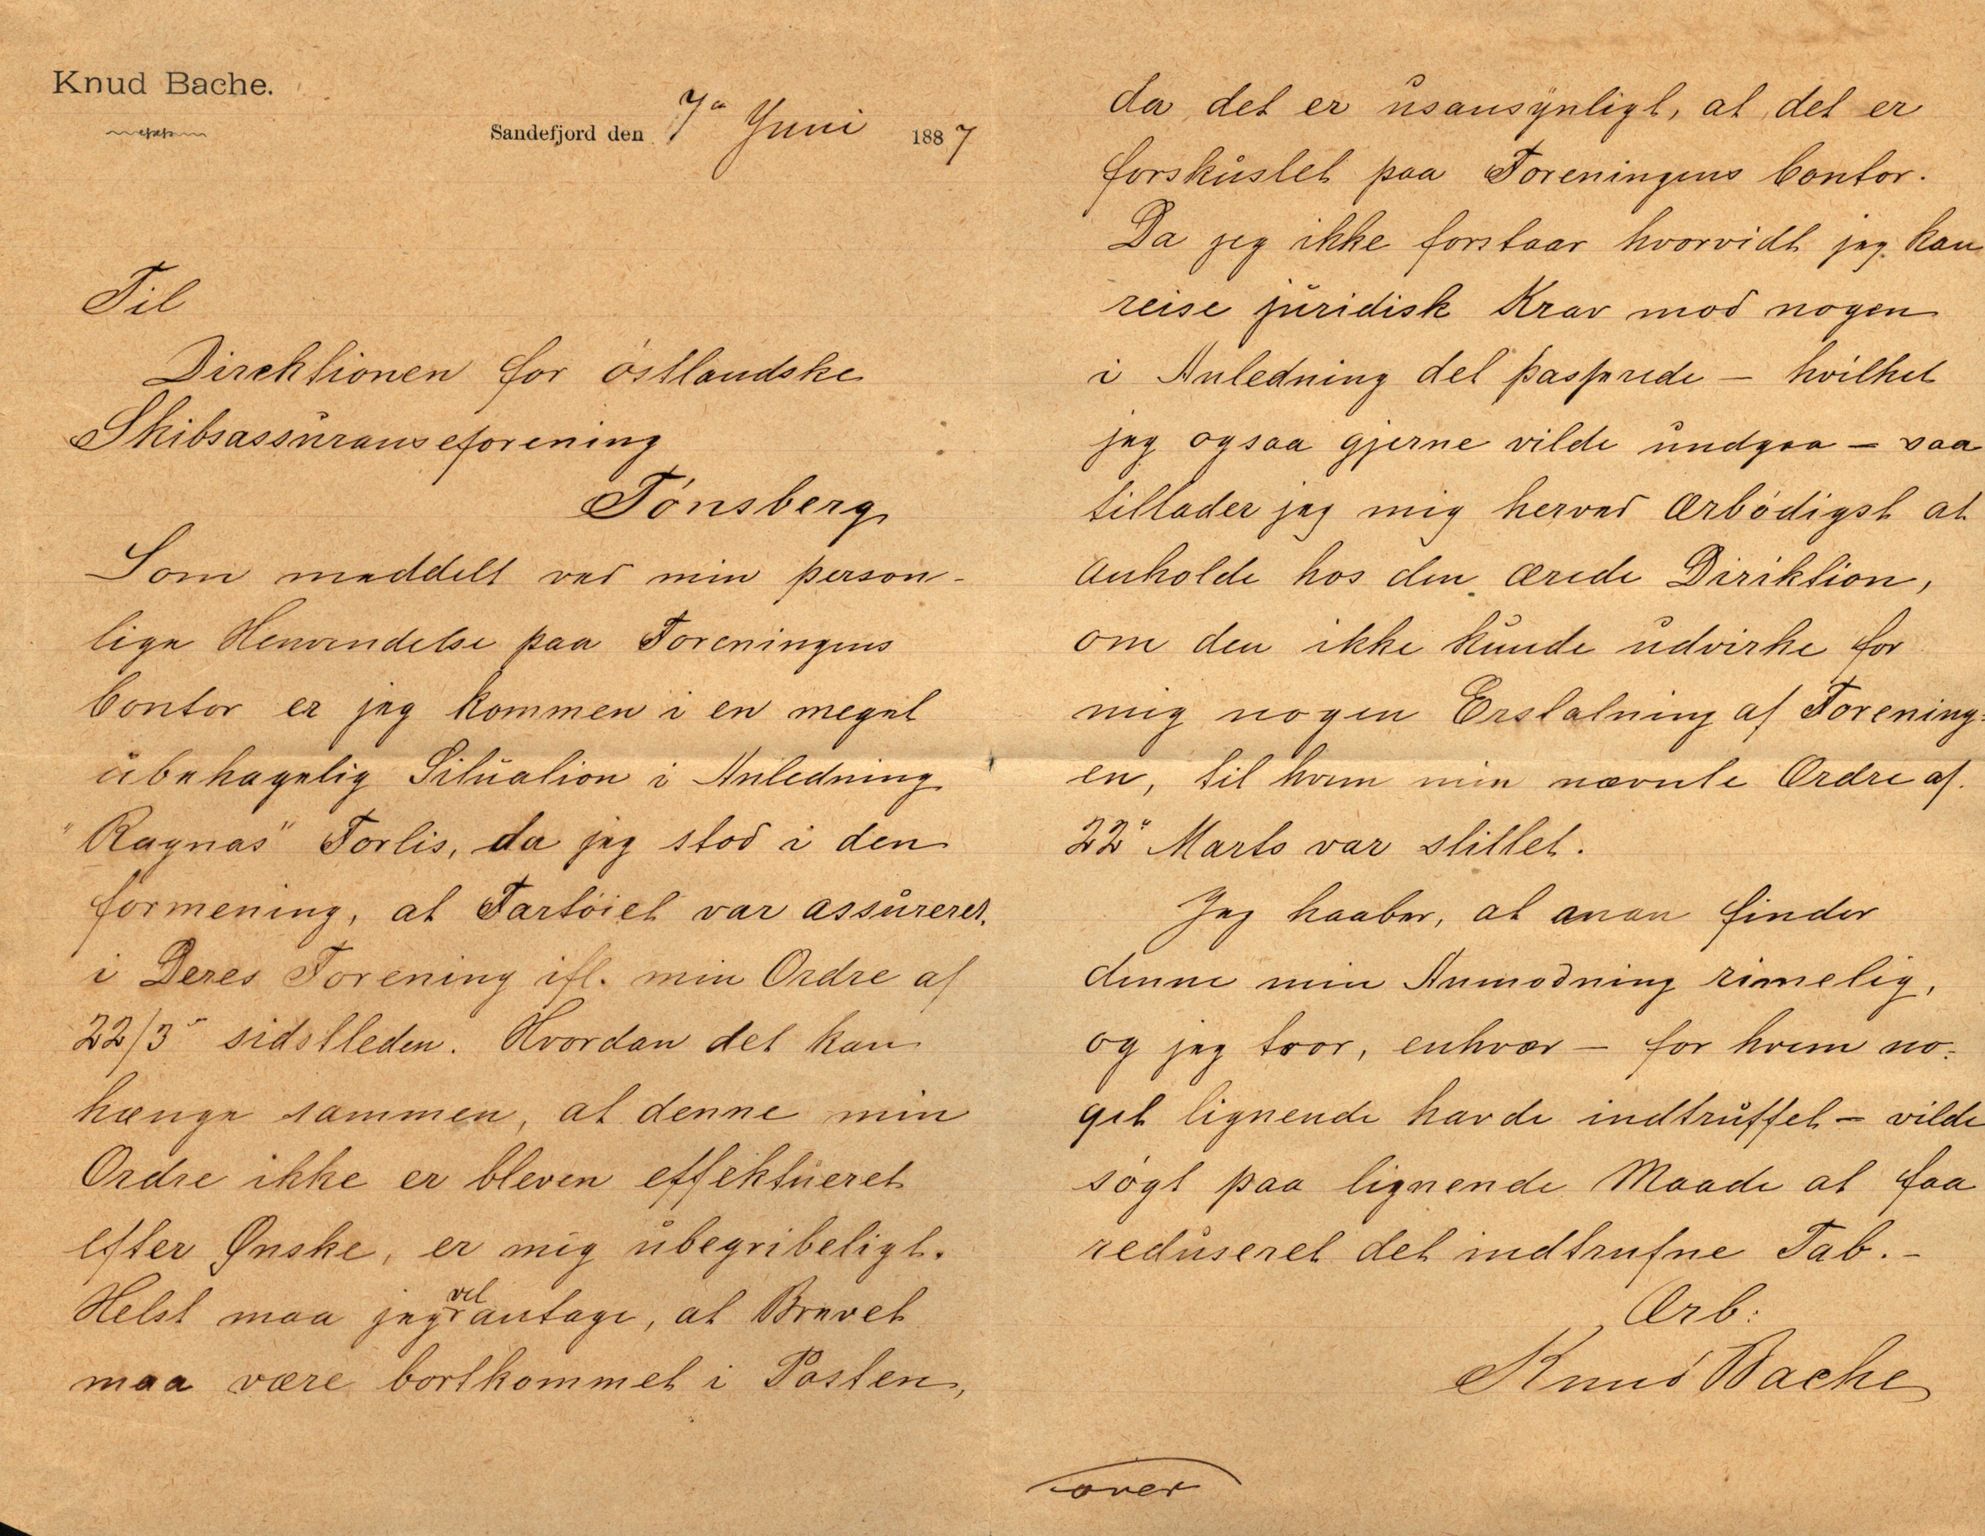 Knud Bache.
Sandefjord den 7de Juni 1887
Til
Direktionen for østlandske
Skibsassuranseforening
Tønsberg
Som meddelt ved min person-
lige Henvendelse paa Foreningens
Contor er jeg kommen i en meget
ubehagelig Situation i Anledning
"Ragnas" Forlis, da jeg stod i den
formening, at Fartøiet var assureret
i Deres Forening ifl. min Ordre af
22/3 sidstleden. Hvordan det kan
hænge sammen, at denne min
Ordre ikke er bleven effektueret
efter Ønske, er mig ubegribeligt.
Helst maa jeg vel antage, at Brevet
maa være bortkommet i Posten,
da det er usansynligt, at det er
forskustet paa Foreningens Contor.
Da jeg ikke forstaar hvorvidt jeg kan
reise juridisk Krav mod nogen
i Anledning det passerede – hvilket
jeg ogsaa gjerne vilde undgaa – saa
tillader jeg mig herved ærbødigst at
anholde hos den ærede Direktion,
om den ikke kunde udvirke for
mig nogen Erstatning af Forening=
en, til hvem min nævnte Ordre af
22" Marts var stillet.
Jeg haaber, at man finder
denne min Anmodning rimelig,
og jeg tror, enhver – for hvem no-
get lignende havde indtruffet – vilde
søgt paa lignende Maade at faa
reduseret det indtrufne Tab. –
Ærb:
Knud Bache
over